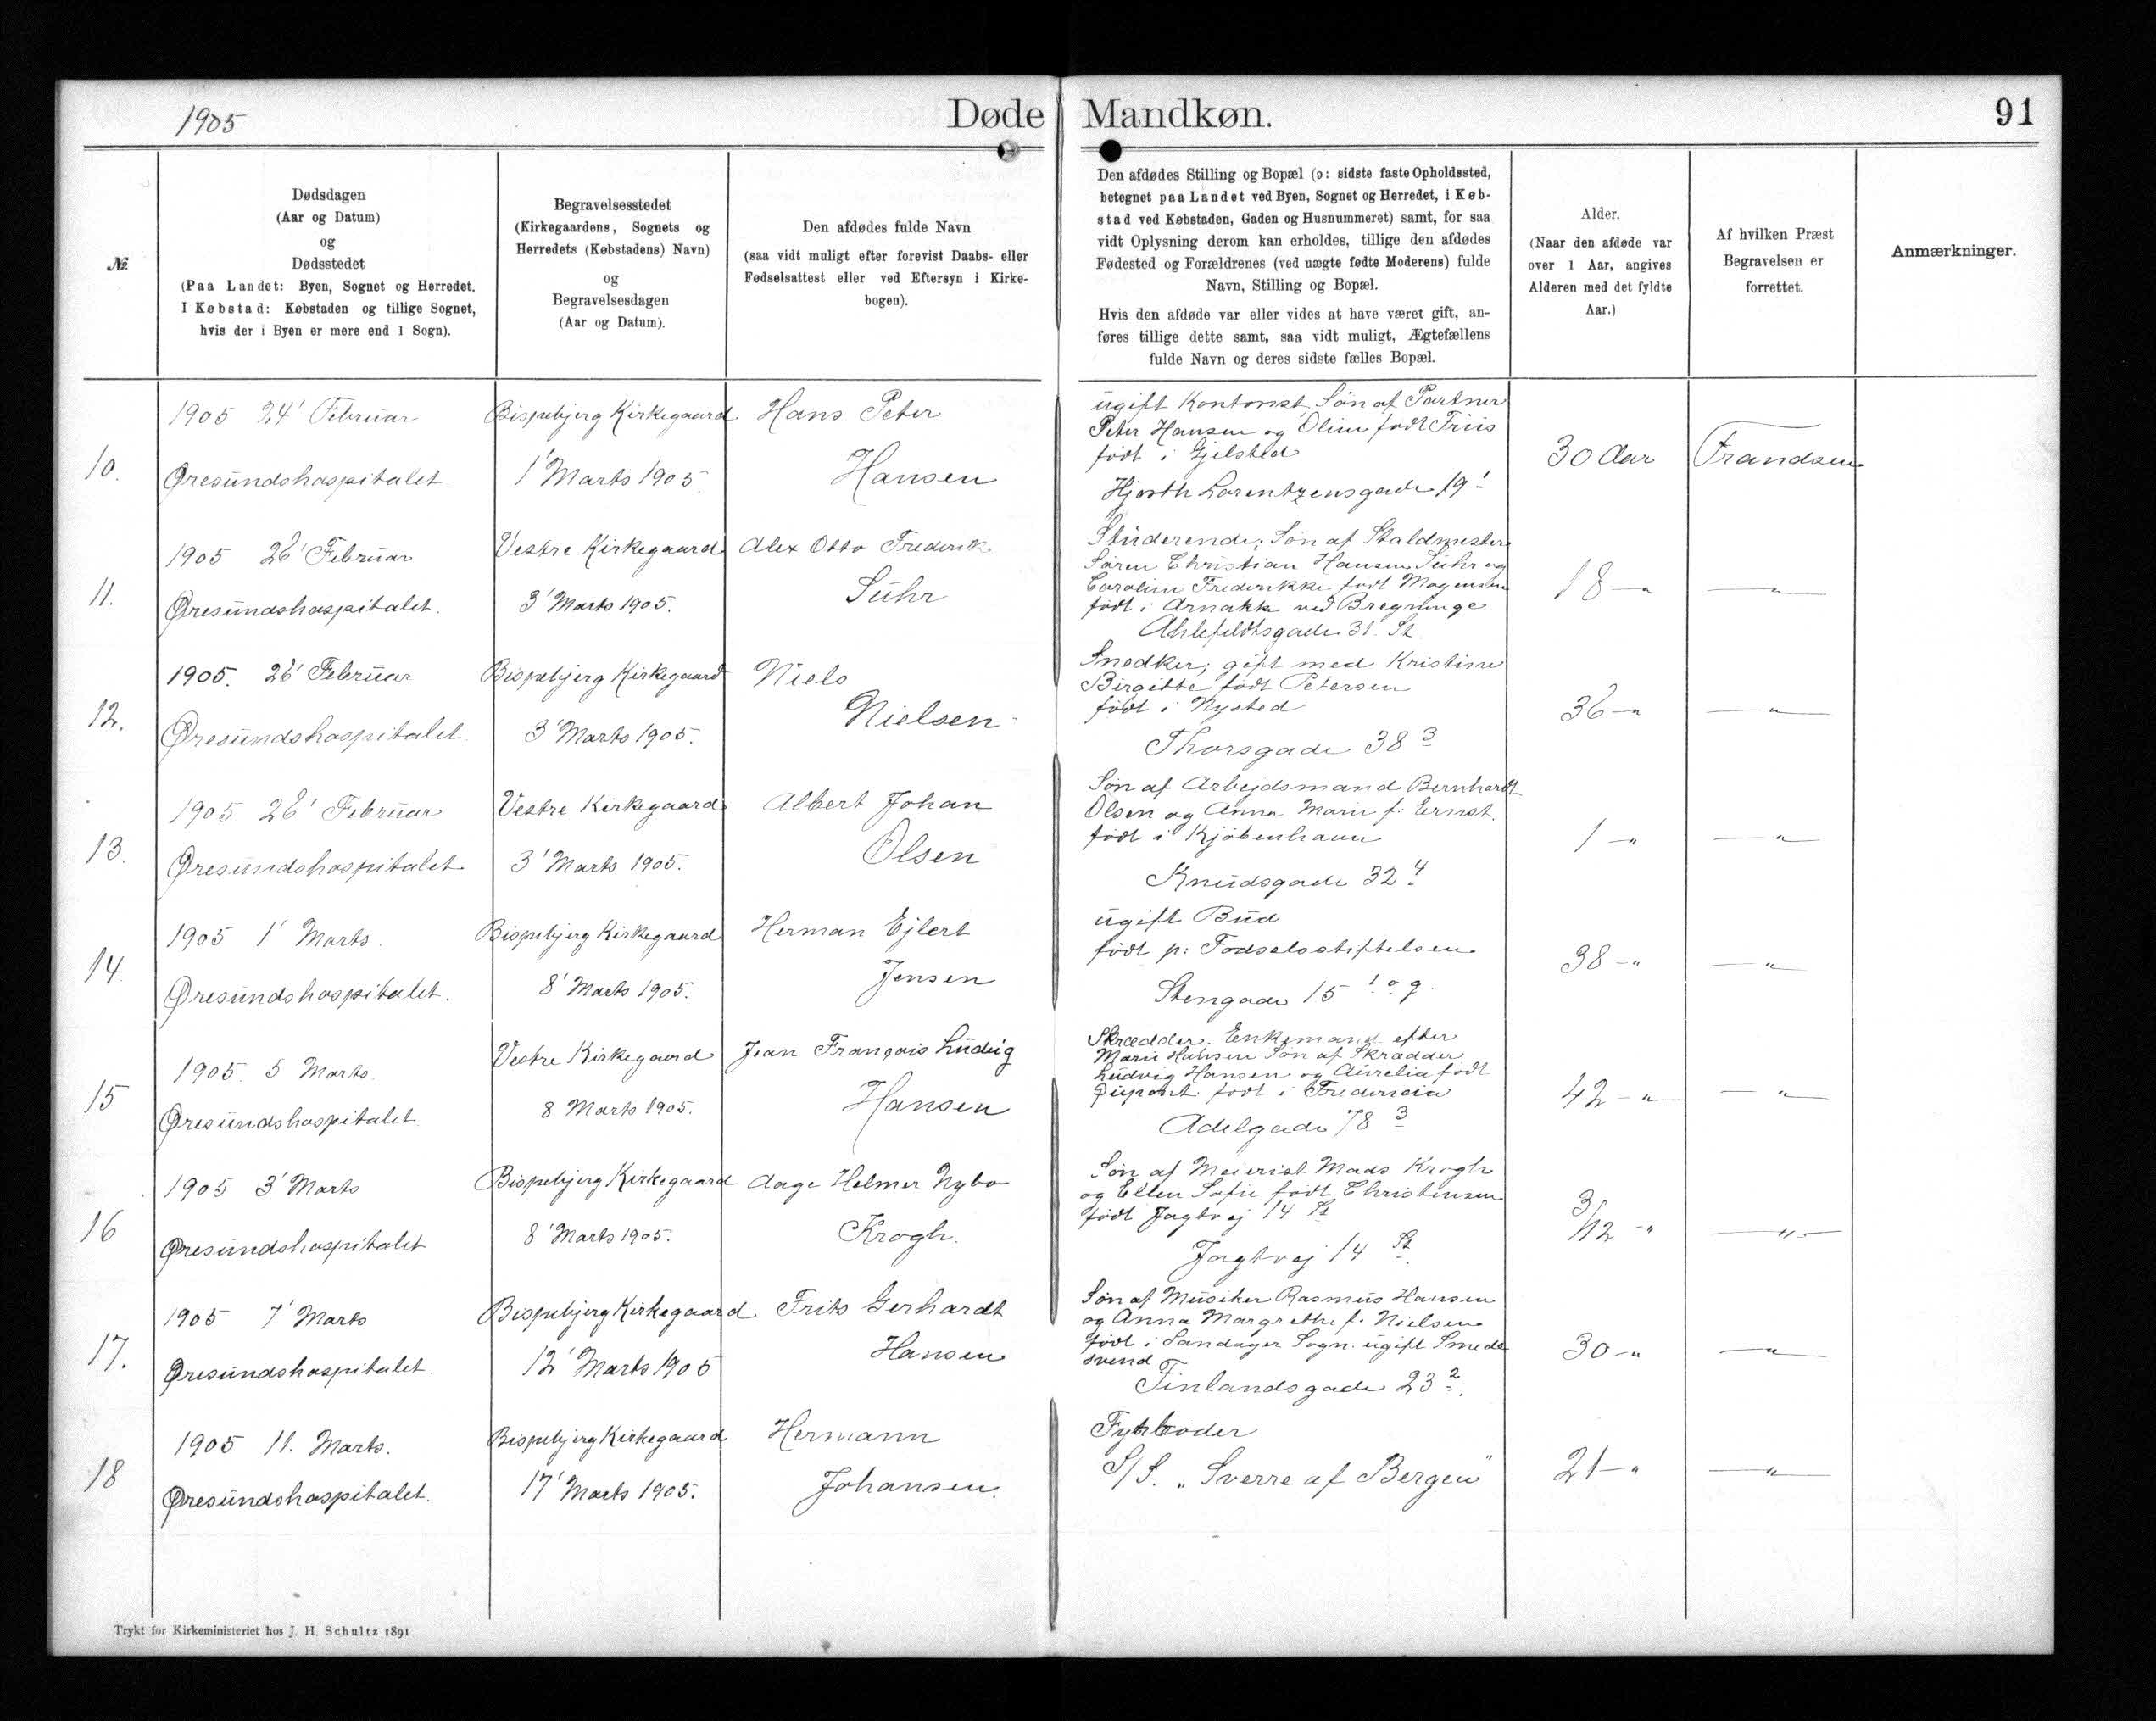 1905
Døde Mandkøn.
91
№.
Dødsdagen
(Aar og Datum)
og
Dødsstedet
(Paa Landet: Byen, Sognet og Herredet.
I Købstad: Købstaden og tillige Sognet,
hvis der i Byen er mere end 1 Sogn).
Begravelsesstedet
(Kirkegaardens, Sognets og
Herredets (Købstadens) Navn)
og
Begravelsesdagen
(Aar og Datum).
Den afdødes fulde Navn
(saa vidt muligt efter forevist Daabs- eller
Fødselsattest eller ved Eftersyn i Kirke-
bogen).
Den afdødes Stilling og Bopæl (ɔ: sidste faste Opholdssted,
betegnet paa Landet ved Byen, Sognet og Herredet, i Køb-
stad ved Købstaden, Gaden og Husnummeret) samt, for saa
vidt Oplysning derom kan erholdes, tillige den afdødes
Fødested og Forældrenes (ved uægte fødte Moderens) fulde
Navn, Stilling og Bopæl.
Hvis den afdøde var eller vides at have været gift, an-
føres tillige dette samt, saa vidt muligt, Ægtefællens
fulde Navn og deres sidste fælles Bopæl.
Alder.
(Naar den afdøde var
over 1 Aar, angives
Alderen med det fyldte
Aar.)
Af hvilken Præst
Begravelsen er
forrettet.
Anmærkninger.
10.
1905 24' Februar
Øresundshospitalet
Bispebjerg Kirkegaard
1' Marts 1905.
Hans Peter
Hansen
ugift Kontorist, Søn af Partner
Peter Hansen og Oline født Friis
født i Gjelsted
Hjorth Lorentzensgade 19 1
30 Aar
Frandsen
11.
1905 26' Februar
Øresundshospitalet.
Vestre Kirkegaard
3' Marts 1905.
Alex Otto Frederik
Suhr
Studerende; Søn af Staldmester
Søren Christian Hansen Suhr og
Caroline Frederikke født Mogensen
født i Arnakke ved Bregninge
Ahlefeldtsgade 31. St
18 — "
— " —
12.
1905. 26' Februar
Øresundshospitalet
Bispebjerg Kirkegaard
3' Marts 1905.
Niels
Nielsen
Snedker; gift med Kristine
Birgitte født Petersen
født i Nysted
Thorsgade 38 3
36 — "
— " —
13.
1905 26' Februar
Øresundshospitalet
Vestre Kirkegaard
3' Marts 1905.
Albert Johan
Olsen
Søn af Arbejdsmand Bernhardt
Olsen og Anna Marie f. Ernst.
født i Kjøbenhavn
Knudsgade 32 4
1 — "
— " —
14.
1905 1' Marts.
Øresundshospitalet.
Bispebjerg Kirkegaard
8' Marts 1905.
Herman Ejlert
Jensen
ugift Bud
født p: Fødselsstiftelsen
Stengade 15 1 o g.
38 — "
— " —
15
1905. 5 Marts.
Øresundshospitalet
Vestre Kirkegaard
8 Marts 1905.
Jean François Ludvig
Hansen
Skrædder, Enkemand efter
Marie Hansen Søn af Skrædder
Ludvig Hansen og Aurelia født
Dupont født i Fredericia
Adelgade 78 3
42 — "
— " —
16
1905 3' Marts
Øresundshospitalet
Bispebjerg Kirkegaard
8' Marts 1905.
Aage Helmer Nybo
Krogh.
Søn af Meierist Mads Krogh
og Ellen Sofie født Christensen
født Jagtvej 14 St
Jagtvej 14 St.
3/12 — "
— " —
17.
1905 7' Marts
Øresundshospitalet.
Bispebjerg Kirkegaard
12' Marts 1905
Frits Gerhardt
Hansen
Søn af Musiker Rasmus Hansen
og Anna Margrethe f. Nielsen
født i Sandager Sogn. ugift Smede
svend
Finlandsgade 23 2.
30 — "
— " —
18
1905 11. Marts.
Øresundshospitalet.
Bispebjerg Kirkegaard
17' Marts 1905.
Hermann
Johansen.
Fyrbøder
S/S. „Sverre af Bergen"
21 — "
— " —
Trykt for Kirkeministeriet hos J. H. Schultz 1891